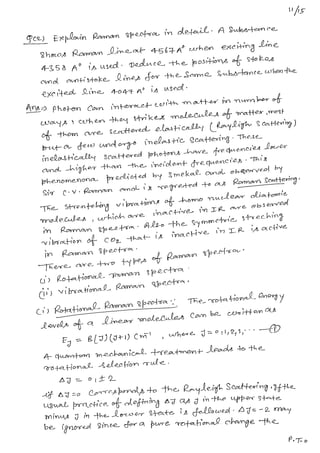 11/15
Q(2) Explain Raman spectra in detail. A Substance
Shows Raman line at 4567 A° when exciting line
4358 A° is used. Deduce the positions of stokes
and antistoke lines for the same substance when the
excited line 4047 A° is used.
Ans → Photon can interact with matter in number of
ways; when they strikes molecules of matter, most
of them are scattered elastically (Rayleigh Scattering)
but a few undergo inelastic scattering. These
inelastically scattered photons have frequencies lower
and higher than the incident frequencies. This
phenomenona predicted by Smekal and observed by
Sir C.V. Raman and is regreted to as Raman Scattering.
The stretching vibrations of homo nuclear diatomic
molecules, which are inactive in IR are observed
in Raman spectra. Also the symmetric streching
vibration of CO2 that is inactive in I.R is active
in Raman spectra.
There are two types of Raman spectra.
(i) Rotational Raman spectra
(ii) Vibrational Raman spectra.
(i) Rotational Raman spectra: The rotational energy
levels of a linear molecules can be written as
EJ = B(J)(J+1) cm-1, where J = 0,1,2, --- ①
A quantum mechanical treatment leads to the
rotational selection rule.
ΔJ = 0, ±2
if ΔJ=0 corresponds to the Rayleigh Scattering. If the
usual practice of defining ΔJ as J in the upper state
minus J in the lower state is followed. ΔJ=-2 may
be ignored since for a pure rotational change the
P.T.O